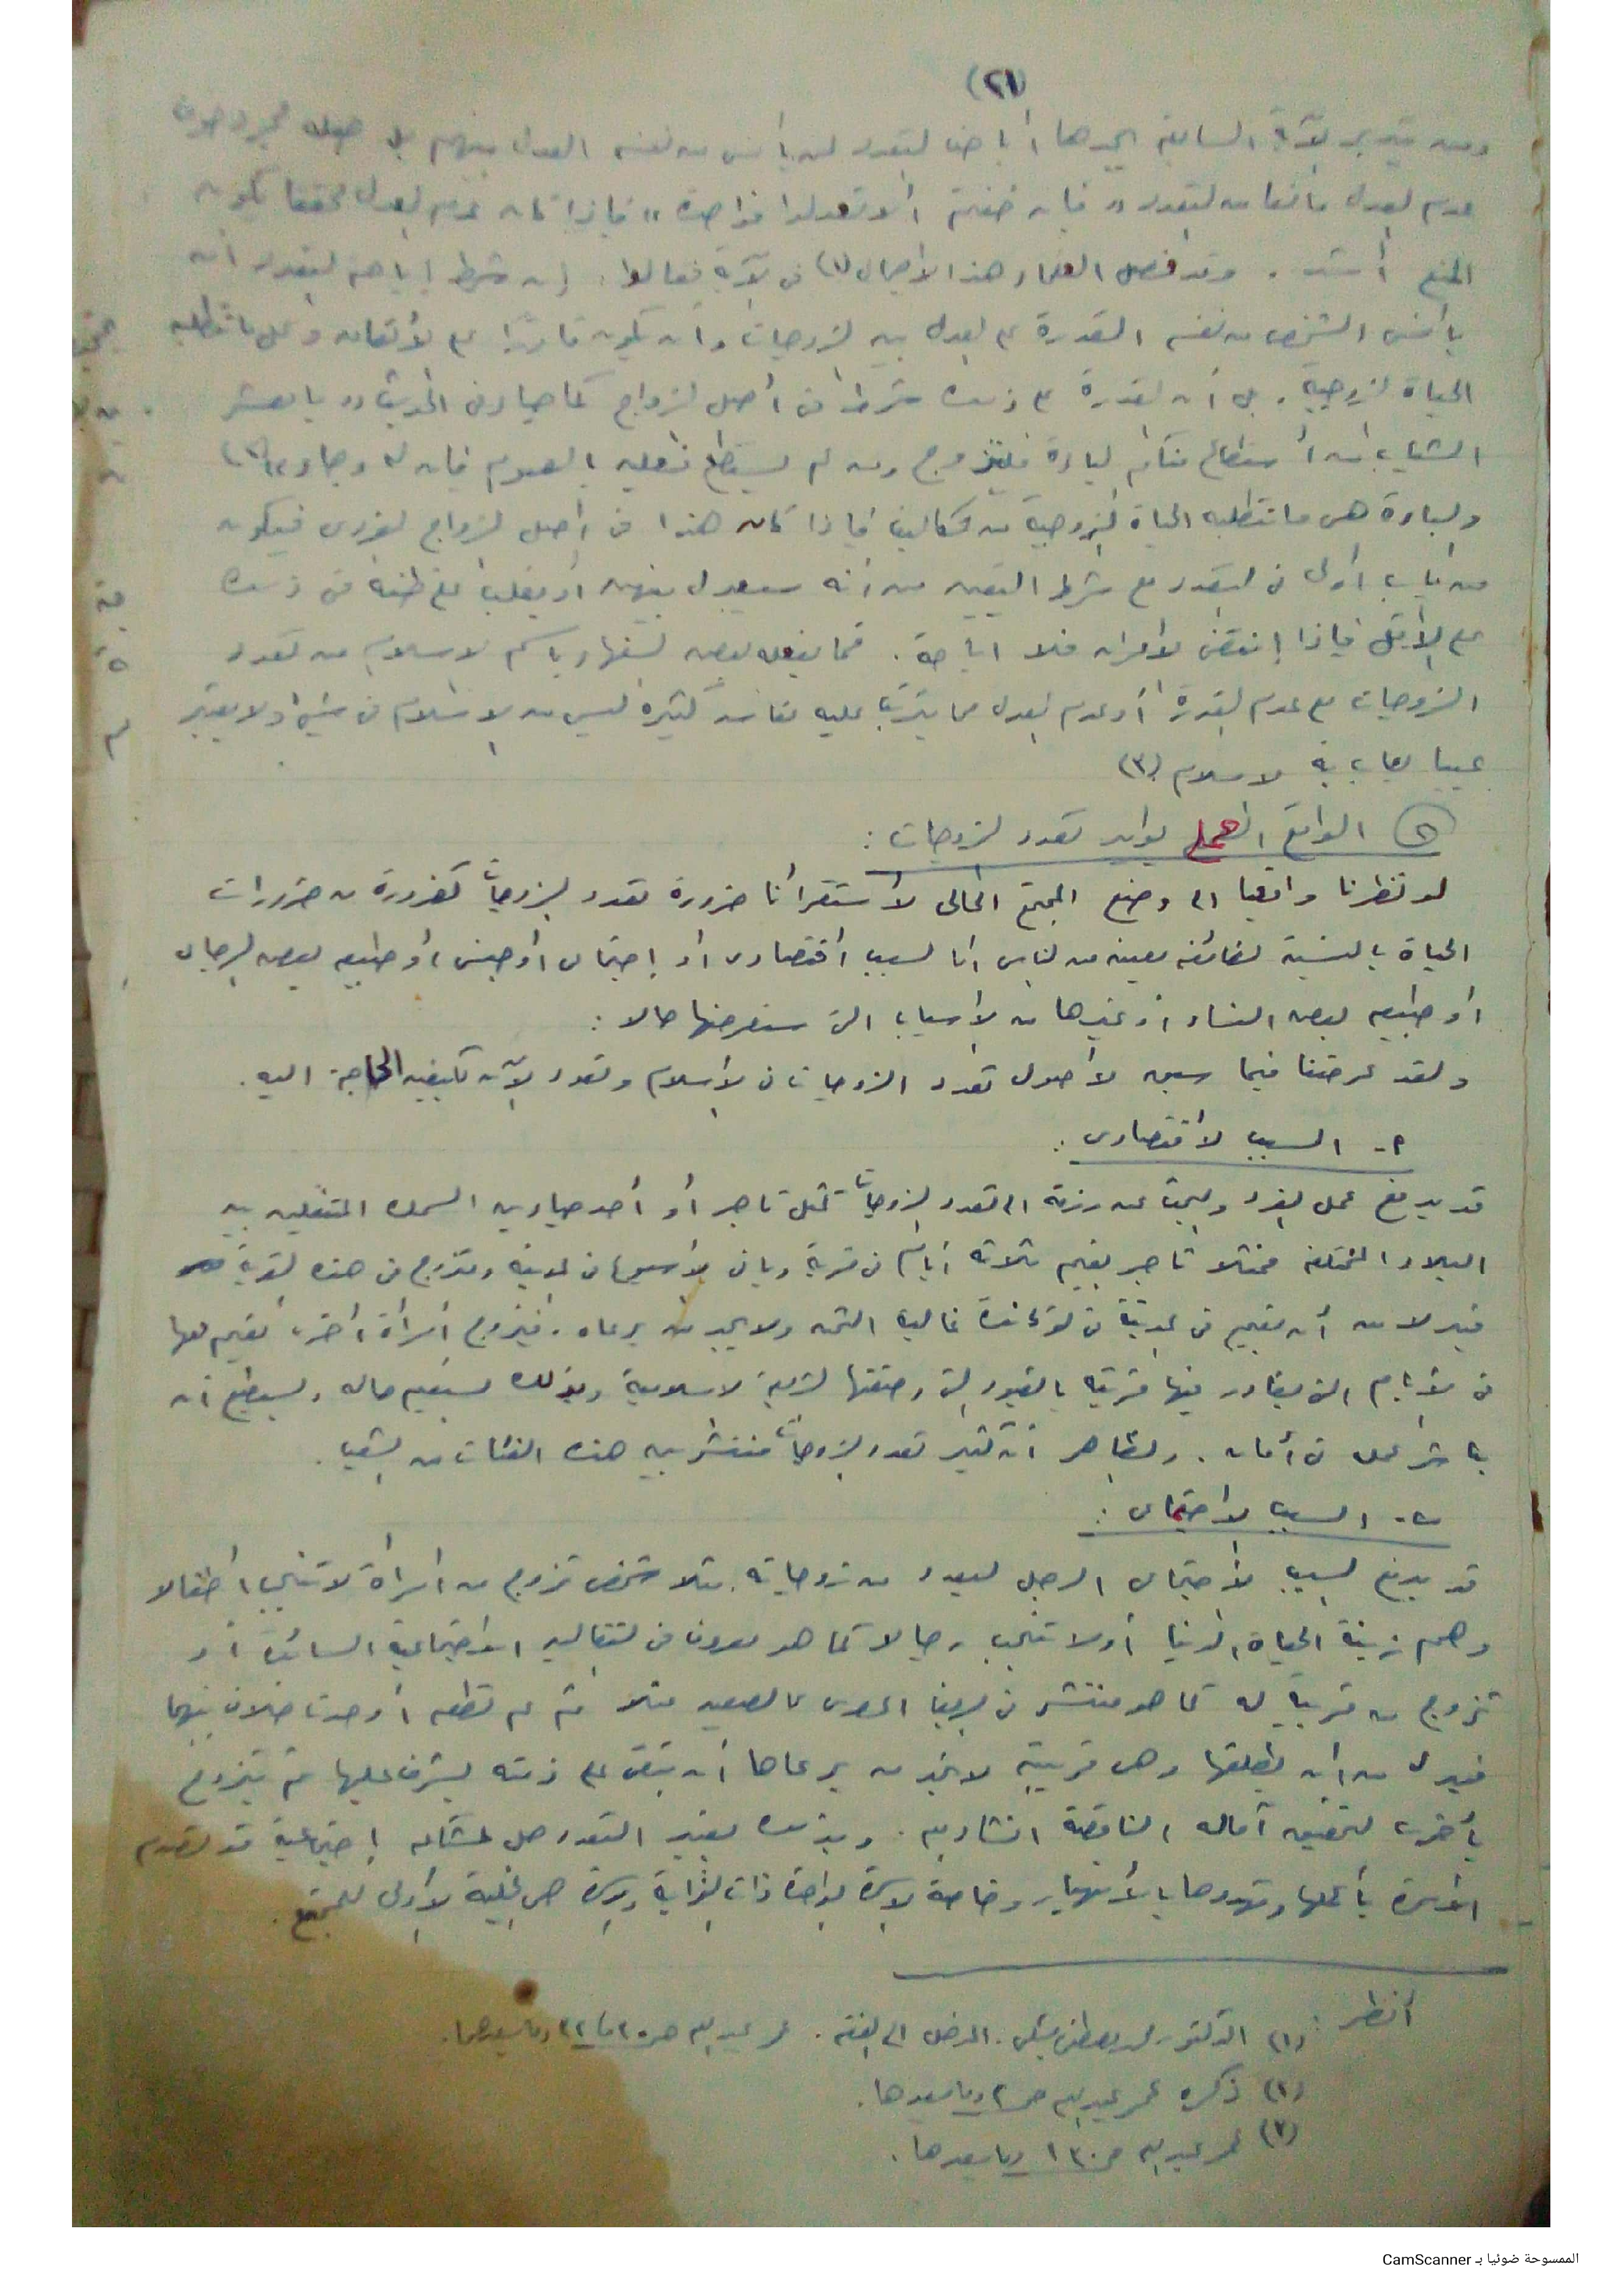 (٢١)
ومن يتدبر الآية السابقة يجدها أباحت التعدد لمن يأنس من نفسه العدل بينهم بل جعلت مجرد خوف
عدم العدل مانعا من التعدد " فإن خفتم ألا تعدلوا فواحدة " فإذا كان عدم العدل محققا تكون
المنع أشد . وقد فصل العلماء هذا الاجمال (١) في الآية فقالوا . إن شرط إباحة التعدد أن
يأنس الشخص من نفسه القدرة على العدل بين الزوجات وأن يكون قادرا على الانفاق وعلى ما تتطلبه
الحياة الزوجية . بل أن القدرة على ذلك شرط في أصل الزواج كما جاء في الحديث " يا معشر
الشباب من أستطاع منكم الباءة فليتزوج ومن لم يستطع فعليه بالصوم فإن له وجاء " (٢)
والباءة هي ما تتطلبه الحياة الزوجية من تكاليف فإذا كان هذا في أصل الزواج الفردي فيكون
من باب أولى في التعدد مع شرط اليقين من أنه سيعدل بينهن أو يغلب على ظنه في ذلك
على الأقل فإذا إنتفى الأمران فلا اباحة . فما يفعله بعض السفهاء باسم الاسلام من تعدد
الزوجات مع عدم القدرة أو عدم العدل مما يترتب عليه مفاسد كثيرة ليس من الاسلام في شيء ولا يعتبر
عيبا يعاب به الاسلام (٣)
الواقع العملي يؤيد تعدد الزوجات :
لو نظرنا واقعيا الى وضع المجتمع الحالي لأستقرأنا ضرورة تعدد الزوجات كضرورة من ضرورات
الحياة بالنسبة لطائفة معينة من الناس اما لسبب اقتصادى أو إجتماعى أو جنسى أو طبيعه بعض الرجال
أو طبيعه بعض النساء أو غيرها من الأسباب التي سنعرضها حالا :
ولقد عرضنا فيما سبق لأصول تعدد الزوجات في الاسلام ونعود الآن لكيفيه الحاجة اليه .
٢- السبب الاقتصادى :
قد يدفع عمل الفرد والبحث عن رزقه الى تعدد الزوجات كمثل تاجر أو أحد صيادين السمك المتنقلين بين
البلاد المختلفه فمثلا تاجر يقيم ثلاثة أيام في قرية وباقى الأسبوع في المدينة ومتزوج من هذه القرية
فبدلا من أن يقيم في المدينة في لوكاندة غالية الثمن ولا يجد من يرعاه . فيتزوج أمرأة أخرى يقيم معها
في الأيام التي يغادر فيها قريته بالقيود التي وضعتها الشريعة الاسلامية وبذلك يستقيم حاله ويستطيع أن
يباشر عمله في أمان . والظاهر أن كثير تعدد الزوجات منتشر بين هذه الفئات من الشعب .
ب- السبب الاجتماعى :
قد يدفع السبب الأجتماعى الرجل ليعدد من زوجاته . مثلا شخص تزوج من امرأة لا تنجب اطفالا
وهم زينة الحياة الدنيا أو لا تنجب رجالا كما هو معروف في التقاليد الاجتماعية السائدة أو
تزوج من قريبة له كما هو منتشر في الريف المصرى كالصعيد مثلا ثم لم تطعه أو حدث خلاف بينهما
فبدلا من أن يطلقها وهى قريبة لا تجد من يرعاها أن تبقى على ذمته يشرف عليها ثم يتزوج
بأخرى لتحقيق آماله الناقصة . وبذلك يعتبر التعدد حل لمشاكل إجتماعية قد تصدم
الأسرة بأكملها وتهددها بالأنهيار وخاصة الاسرة الواحدة ذات القرابة والاسرة هي الخلية الأولى للمجتمع .
أنظر :
(١) الدكتور محمد مصطفى شلبي . المدخل الى الفقه .
(٢) ذكره وما بعدها .
(٣) ص ١٣٠ وما بعدها .
الممسوحة ضوئيا بـ CamScanner